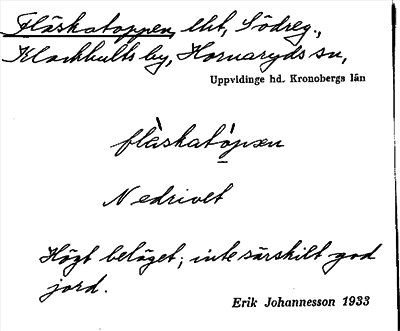 Fläskatoppen, lht, Södreg.,
Klackhults by, Hornaryds sn,
Uppvidinge hd. Kronobergs län
flàskatópxn
Nedrivet
Högt beläget; inte särskilt god
jord.
Erik Johannesson 1933